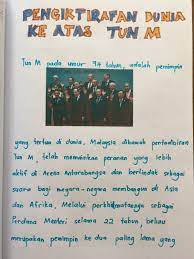 PENGIKTIRAFAN DUNIA
KE ATAS TUN M
Tun M pada umur 94 tahun, adalah pemimpin
yang tertua di dunia, Malaysia dibawah pentadbiran
Tun M, telah memainkan peranan yang lebih
aktif di Arena Antarabangsa dan bertindak sebagai
suara bagi negara-negara membangun di Asia
dan Afrika, Melalui perkhidmatannya sebagai
Perdana Menteri selama 22 tahun, beliau
merupakan pemimpin ke dua paling lama yang